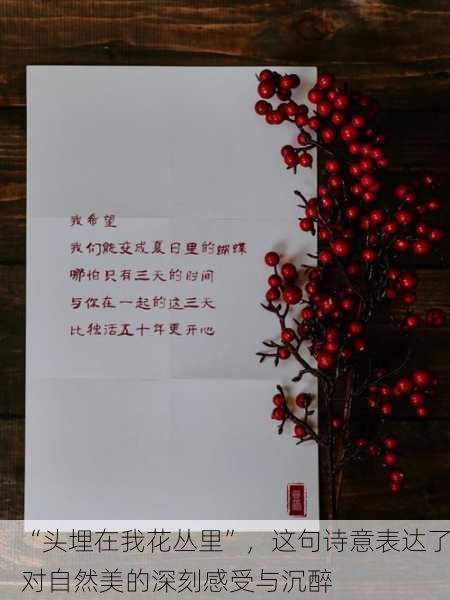 我希望
我们能变成夏日里的蝴蝶
哪怕只有三天的时间
与你在一起的这三天
比独活五十年更开心
“头埋在我花丛里”，这句诗意表达了
对自然美的深刻感受与沉醉